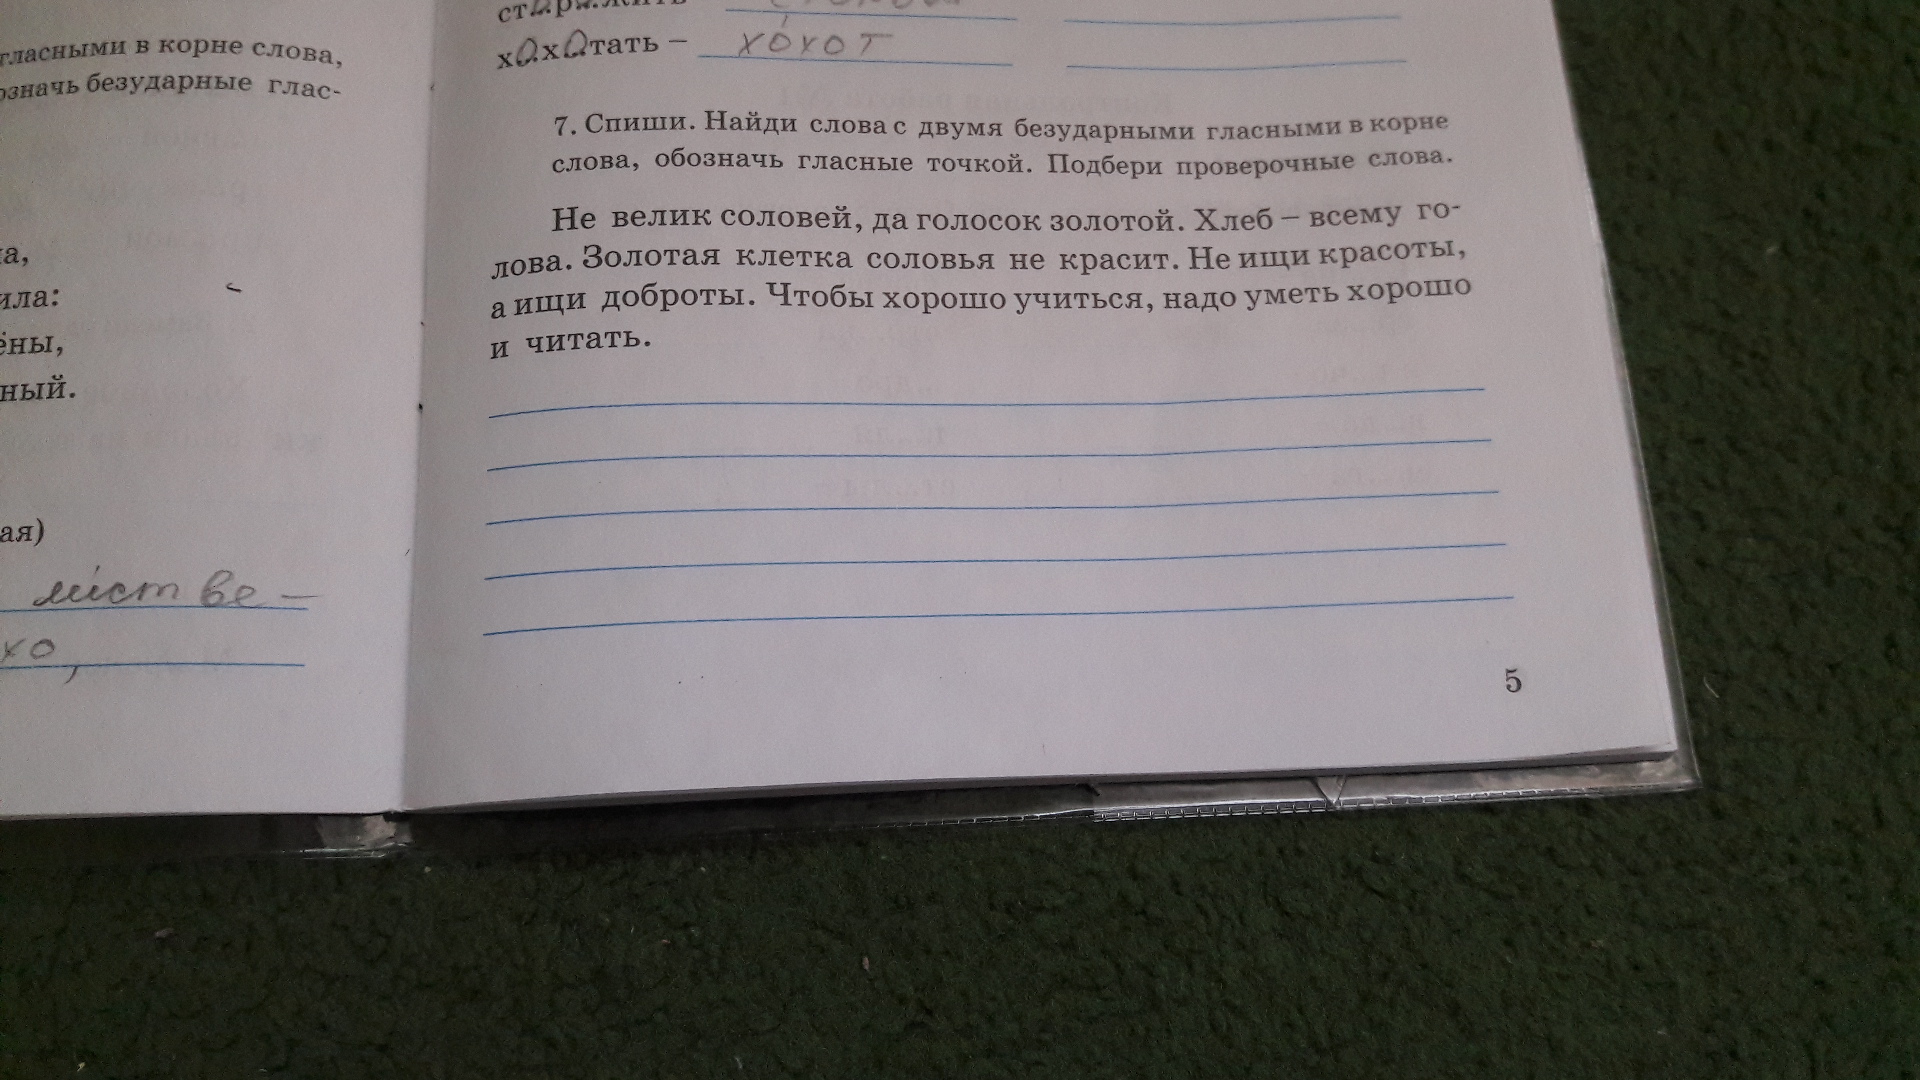 гласными в корне слова,
означь безударные глас-
ила:
ёны,
ный.
ая)
листве –
хо,
хохотать – хо́хот
7. Спиши. Найди слова с двумя безударными гласными в корне
слова, обозначь гласные точкой. Подбери проверочные слова.
Не велик соловей, да голосок золотой. Хлеб – всему го-
лова. Золотая клетка соловья не красит. Не ищи красоты,
а ищи доброты. Чтобы хорошо учиться, надо уметь хорошо
и читать.
5